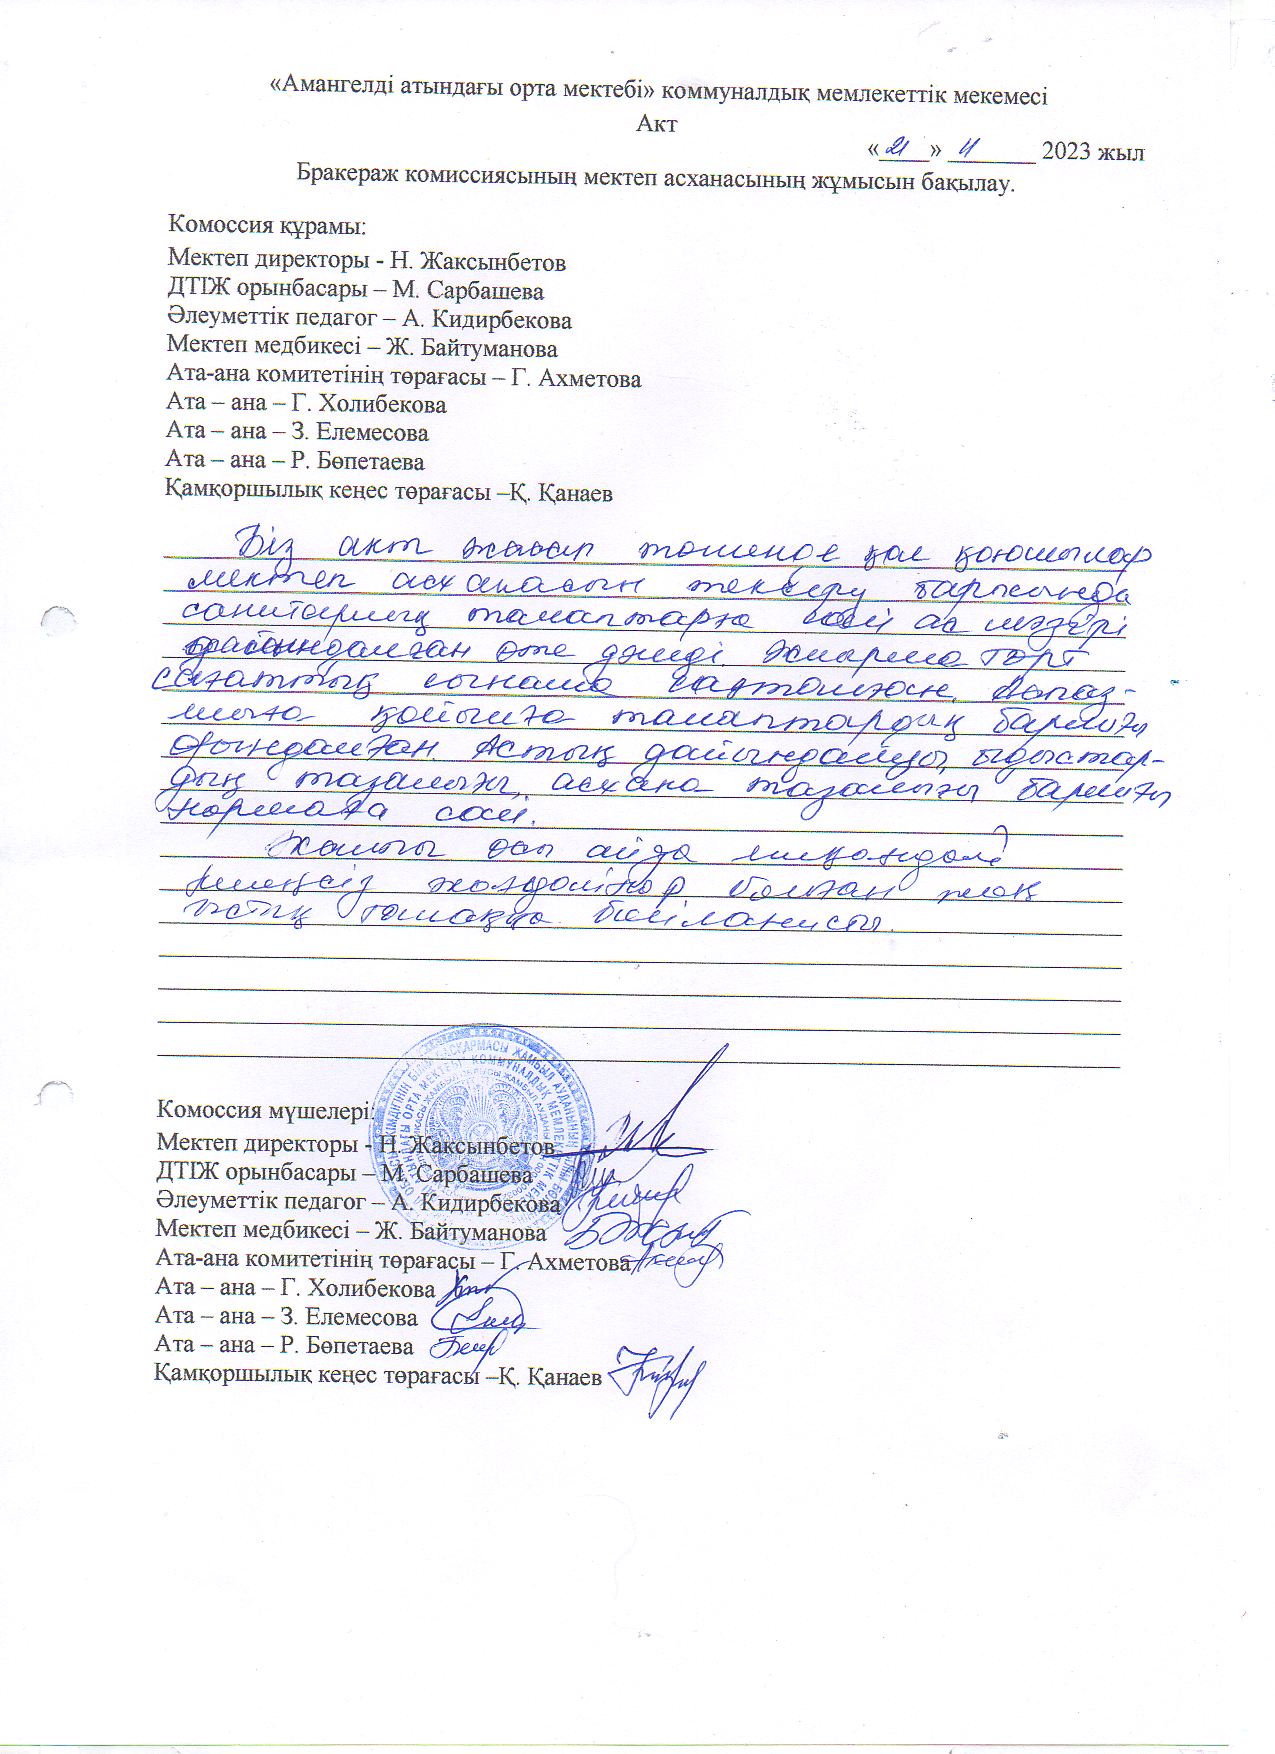 «Амангелді атындағы орта мектебі» коммуналдық мемлекеттік мекемесі
Акт
«21» 11 2023 жыл
Бракераж комиссиясының мектеп асханасының жұмысын бақылау.
Комоссия құрамы:
Мектеп директоры - Н. Жаксынбетов
ДТІЖ орынбасары – М. Сарбашева
Әлеуметтік педагог – А. Кидирбекова
Мектеп медбикесі – Ж. Байтуманова
Ата-ана комитетінің төрағасы – Г. Ахметова
Ата – ана – Г. Холибекова
Ата – ана – З. Елемесова
Ата – ана – Р. Бөпетаева
Қамқоршылық кеңес төрағасы –Қ. Қанаев
Біз акт жасап төменде қол қоюшылар
мектеп асханасын тексеру барысында
санитарлық талаптарға сай ас мәзірі
дайындалған өте дәмді. Жиырма төрт
сағаттық сынама сақталған. Аспаз-
шыға қойылға талаптардың барлығы
орындалған. Астың дайындалуы, ыдыстар-
дың тазалығы, асхана тазалығы барлығы
нормаға сай.
Жалпы осы айда
жағдайлар болған жоқ
ыстық тамаққа байланысты.
Комоссия мүшелері:
Мектеп директоры - Н. Жаксынбетов
ДТІЖ орынбасары – М. Сарбашева
Әлеуметтік педагог – А. Кидирбекова
Мектеп медбикесі – Ж. Байтуманова
Ата-ана комитетінің төрағасы – Г. Ахметова
Ата – ана – Г. Холибекова
Ата – ана – З. Елемесова
Ата – ана – Р. Бөпетаева
Қамқоршылық кеңес төрағасы –Қ. Қанаев